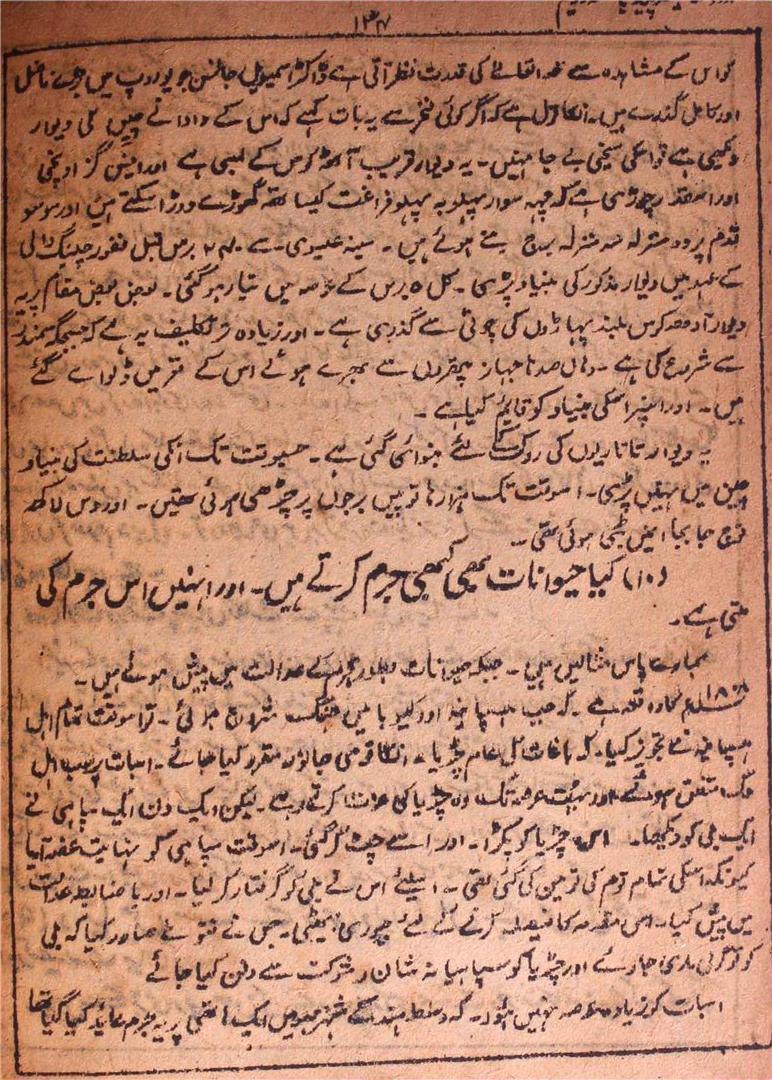 ۱۳۷
کو اس کے مشاہدہ سے خدا تعالےٰ کی قدرت نظر آتی ہے ڈاکٹر اسمیوئل جانسن جو یوروپ میں بڑے فاضل
اور کامل گذرے ہیں۔ انکا قول ہے کہ اگر کوئی فخر سے یہ بات کہے کہ اس کے دادا نے چین کی دیوار
دیکھی ہے تو اسکی شیخی بے جا نہیں۔ یہ دیوار قریب آٹھ کوس کے لمبی ہے اور بیس گز اونچی
اور اسقدر چوڑی ہے کہ چھہ سوار پہلو بہ پہلو فراغت کیساتھ گھوڑے دوڑا سکتے ہیں اور سو سو
قدم پر دو منزلہ سہ منزلہ برج بنے ہوئے ہیں۔ سنہ عیسوی سے برس قبل فغفور
کے عہد میں دیوار مذکور کی بنیاد پڑی۔ کل ۵ برس کے عرصہ میں تیار ہو گئی۔ بعض بعض مقام پر یہ
دیوار آدھ کوس بلند پہاڑوں کی چوٹی سے گذری ہے۔ اور زیادہ تر تکلیف یہ ہے کہ جسجگہ سمندر
سے شروع کی ہے۔ وہاں صدہا جہاز پتھروں سے بھرے ہوئے اس کے میں ڈلوائے گئے
ہیں۔ اور اسپر اسکی بنیاد کو قائم کیا ہے۔
یہ دیوار تاتاریوں کی روک کے لئے بنوائی گئی ہے۔ جسوقت تک انکی سلطنت کی بنیاد
چین میں نہیں پڑی۔ اسوقت تک ہزارہا توپیں برجوں پر چڑھی ہوئی تھیں۔ اور دس لاکھ
فوج جا بجا ہوئی تھی۔
(۱۰) کیا حیوانات بھی کبھی جرم کرتے ہیں۔ اور انہیں اس جرم کی
ملتی ہے۔
ہمارے پاس مثالیں ہیں۔ جبکہ حیوانات بطور مجرم کے عدالت میں پیش ہوئے ہیں۔
کا واقعہ ہے۔ کہ جب ہسپانیہ اور کیوبا میں جنگ شروع ہوئی۔ تو اسوقت تمام اہل
ہسپانیہ نے تجویز کیا۔ کہ چڑیا۔ انکا قومی جانور مقرر کیا جائے۔ اسبات پر سب اہل
ملک متفق ہوئے اور بہت عرصہ تک وہ چڑیا کی عزت کرتے رہے۔ لیکن ایک دن ایک سپاہی نے
ایک بلی کو دیکھا۔ اس چڑیا کو پکڑا۔ اور اسے چٹ کر گئی۔ اسوقت سپاہی کو نہایت غصہ آیا
کیونکہ اسکی تمام قوم کی توہین کی گئی تھی۔ اسلئے اس نے بلی کو گرفتار کر لیا۔ اور باضابطہ عدالت
میں پیش کیا۔ اس مقدمہ کا فیصلہ کرنے کے لئے جیوری بیٹھی۔ جس نے فتوےٰ صادر کیا کہ بلی
کو گولی ماری جاوے اور چڑیا کو سپاہیانہ شان و شوکت سے دفن کیا جائے
اسبات کو زیادہ عرصہ نہیں ہوا۔ کہ وسط ہند کے شہر میں ایک ہاتھی پر یہ جرم عائد کیا گیا تھا